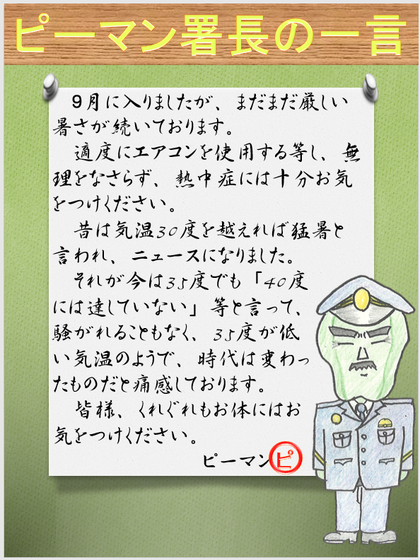 ピーマン署長の一言
９月に入りましたが、まだまだ厳しい
暑さが続いております。
適度にエアコンを使用する等し、無
理をなさらず、熱中症には十分お気
をつけください。
昔は気温30度を越えれば猛暑と
言われ、ニュースになりました。
それが今は35度でも「40度
には達していない」等と言って、
騒がれることもなく、35度が低
い気温のようで、時代は変わっ
たものだと痛感しております。
皆様、くれぐれもお体にはお
気をつけください。
ピーマン ピ